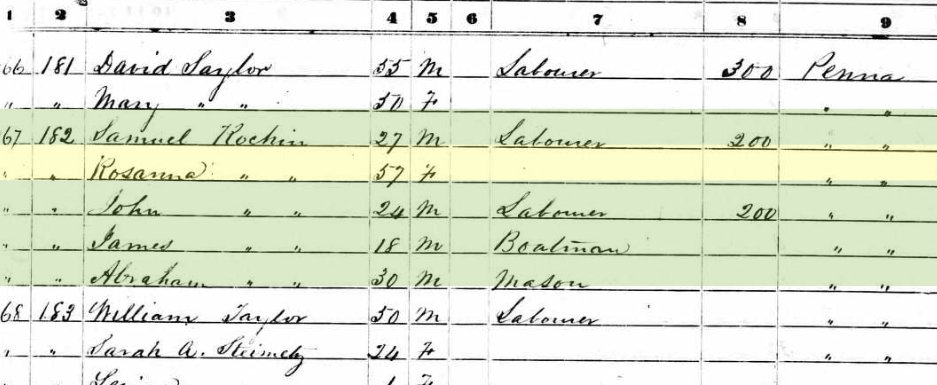 1 2 3 4 5 6 7 8 9
66 181 David Taylor 55 M Labourer 300 Penna
" " Mary " " 50 F " "
67 182 Samuel Kochin 27 M Labourer 200 " "
" " Rosanna " " 57 F " "
" " John " " 24 M Labourer 200 " "
" " James " " 18 M Boatman " "
" " Abraham " " 30 M Mason " "
68 183 William Taylor 50 M Labourer " "
" " Sarah A. Steimetz 24 F " "